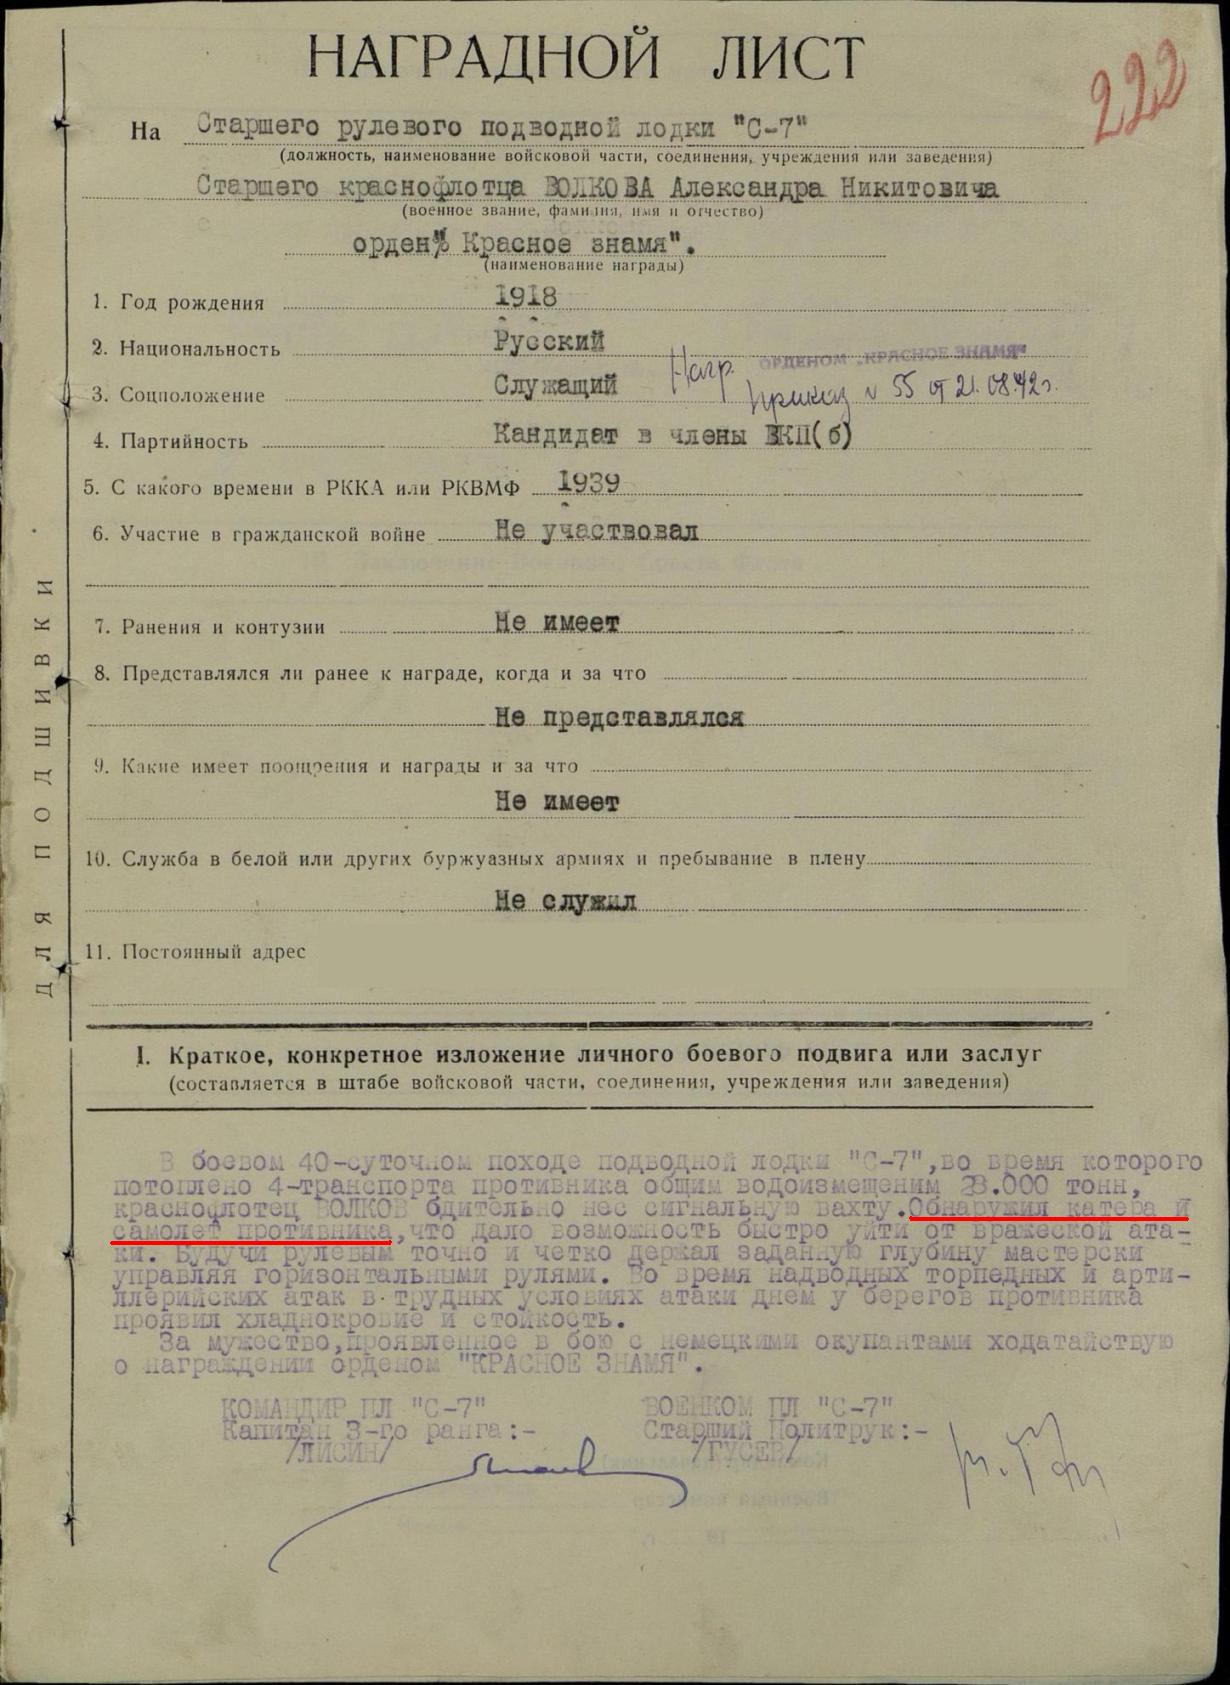 НАГРАДНОЙ ЛИСТ
222
На Старшего рулевого подводной лодки "С-7"
(должность, наименование войсковой части, соединения, учреждения или заведения)
Старшего краснофлотца ВОЛКОВА Александра Никитовича
(военное звание, фамилия, имя и отчество)
орден" Красное знамя".
(наименование награды)
1. Год рождения 1918
2. Национальность Русский
Нагр. ОРДЕНОМ „КРАСНОЕ ЗНАМЯ"
3. Соцположение Служащий
приказ № 55 от 21.08.42г.
4. Партийность Кандидат в члены ВКП(б)
5. С какого времени в РККА или РКВМФ 1939
6. Участие в гражданской войне Не участвовал
7. Ранения и контузии Не имеет
8. Представлялся ли ранее к награде, когда и за что
Не представлялся
9. Какие имеет поощрения и награды и за что
Не имеет
10. Служба в белой или других буржуазных армиях и пребывание в плену
Не служил
11. Постоянный адрес
ДЛЯ ПОДШИВКИ
I. Краткое, конкретное изложение личного боевого подвига или заслуг
(составляется в штабе войсковой части, соединения, учреждения или заведения)
В боевом 40-суточном походе подводной лодки "С-7",во время которого
потоплено 4-транспорта противника общим водоизмещеним 28.000 тонн,
краснофлотец ВОЛКОВ бдительно нес сигнальную вахту.Обнаружил катера и
самолет противника,что дало возможность быстро уйти от вражеской ата-
ки. Будучи рулевым точно и четко держал заданную глубину мастерски
управляя горизонтальными рулями. Во время надводных торпедных и арти-
ллерийских атак в трудных условиях атаки днем у берегов противника
проявил хладнокровие и стойкость.
За мужество,проявленное в бою с немецкими окупантами ходатайствую
о награждении орденом "КРАСНОЕ ЗНАМЯ".
КОМАНДИР ПЛ "С-7" ВОЕНКОМ ПЛ "С-7"
Капитан 3-го ранга:- Старший Политрук:-
/ЛИСИН/ /ГУСЕВ/